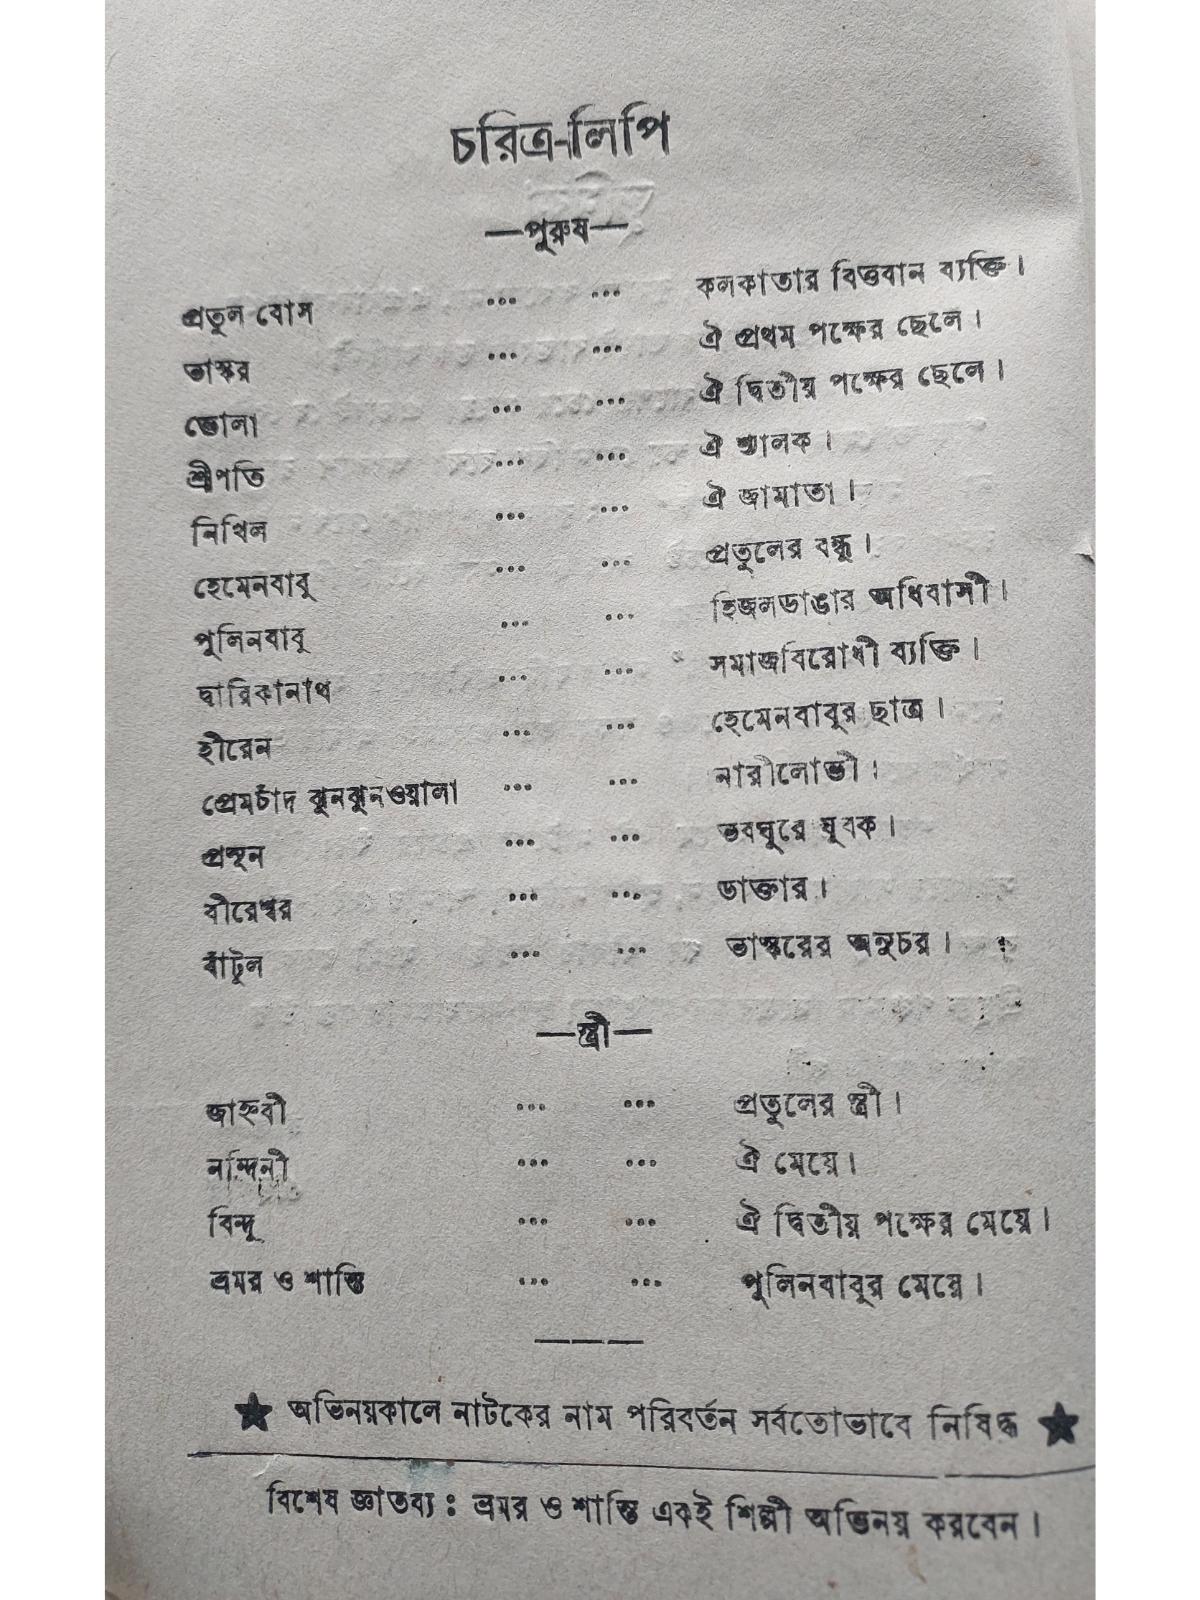 চরিত্র-লিপি
—পুরুষ—
প্রতুল বোস ... ... কলকাতার বিত্তবান ব্যক্তি।
ভাস্কর ... ... ঐ প্রথম পক্ষের ছেলে।
ভোলা ... ... ঐ দ্বিতীয় পক্ষের ছেলে।
শ্রীপতি ... ... ঐ শ্যালক।
নিখিল ... ... ঐ জামাতা।
হেমেনবাবু ... ... প্রতুলের বন্ধু।
পুলিনবাবু ... ... হিজলডাঙার অধিবাসী।
দ্বারিকানাথ ... ... সমাজবিরোধী ব্যক্তি।
হীরেন ... ... হেমেনবাবুর ছাত্র।
প্রেমচাঁদ ঝুনঝুনওয়ালা ... ... নারীলোভী।
প্রসূন ... ... ভবঘুরে যুবক।
বীরেশ্বর ... ... ডাক্তার।
বাঁটুল ... ... ভাস্করের অনুচর।
—স্ত্রী—
জাহ্নবী ... ... প্রতুলের স্ত্রী।
নন্দিনী ... ... ঐ মেয়ে।
বিন্দু ... ... ঐ দ্বিতীয় পক্ষের মেয়ে।
ভ্রমর ও শান্তি ... ... পুলিনবাবুর মেয়ে।
★ অভিনয়কালে নাটকের নাম পরিবর্তন সর্বতোভাবে নিষিদ্ধ ★
বিশেষ জ্ঞাতব্য : ভ্রমর ও শান্তি একই শিল্পী অভিনয় করবেন।